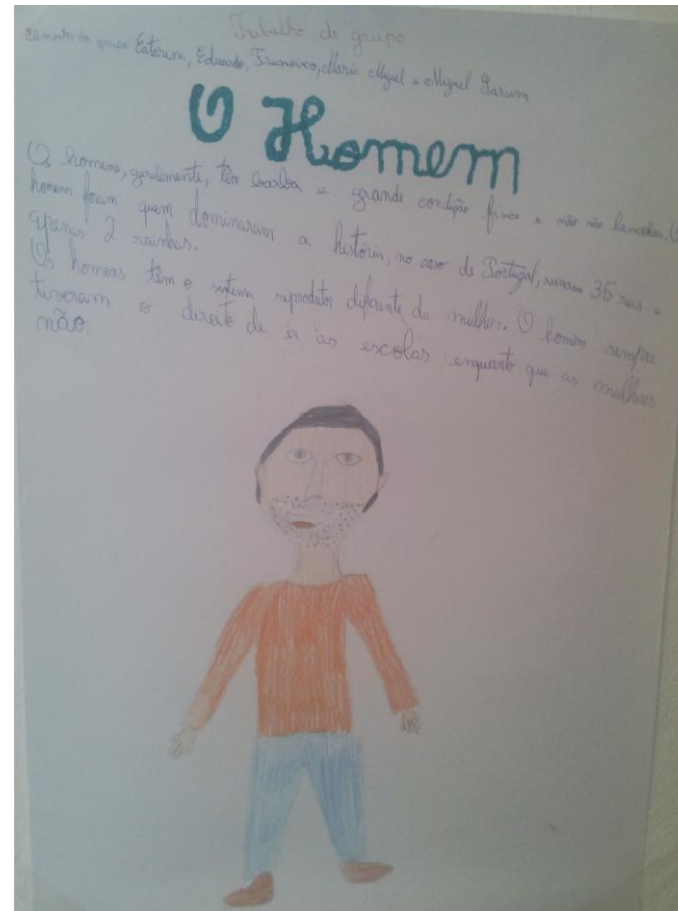 Trabalho de grupo
Elementos do grupo: Catarina, Eduardo, Francisco, Maria Miguel e Miguel
O Homem
Os homens, geralmente, têm barba e grande condição física e não são lamechas. Os
homens foram quem dominaram a história, no caso de Portugal, 35 reis e
apenas 2 rainhas.
Os homens têm o sistema reprodutor diferente da mulher. O homem sempre
tiveram o direito de ir às escolas enquanto que as mulheres
não.